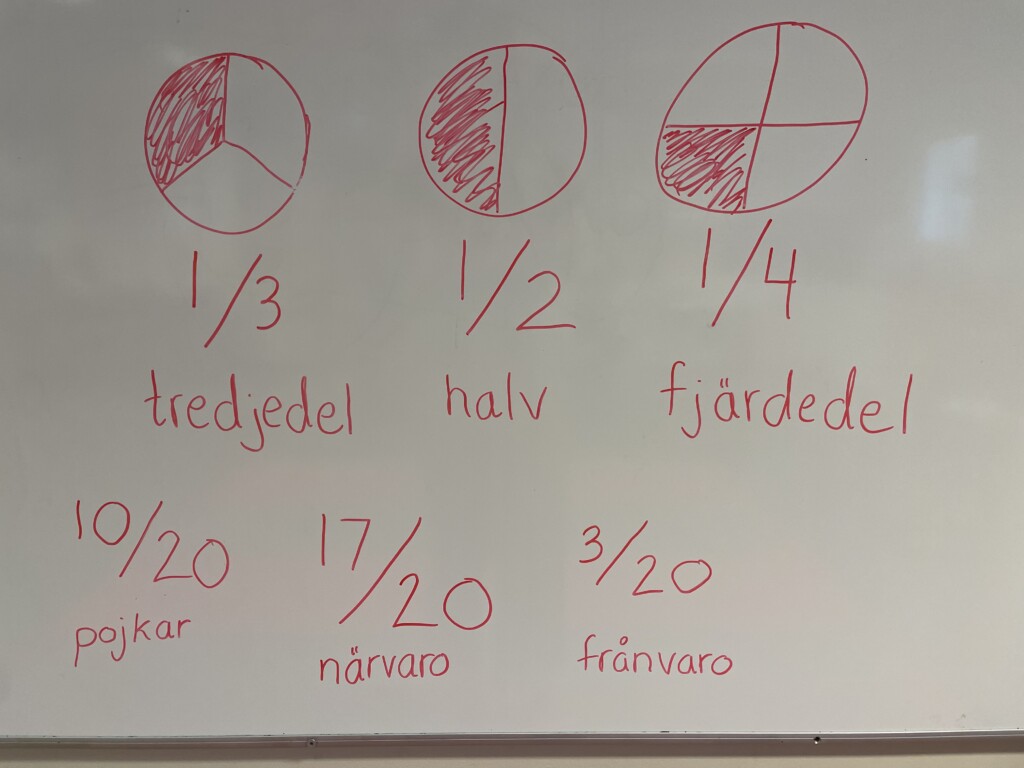 1/3 1/2 1/4
tredjedel halv fjärdedel
10/20 17/20 3/20
pojkar närvaro frånvaro